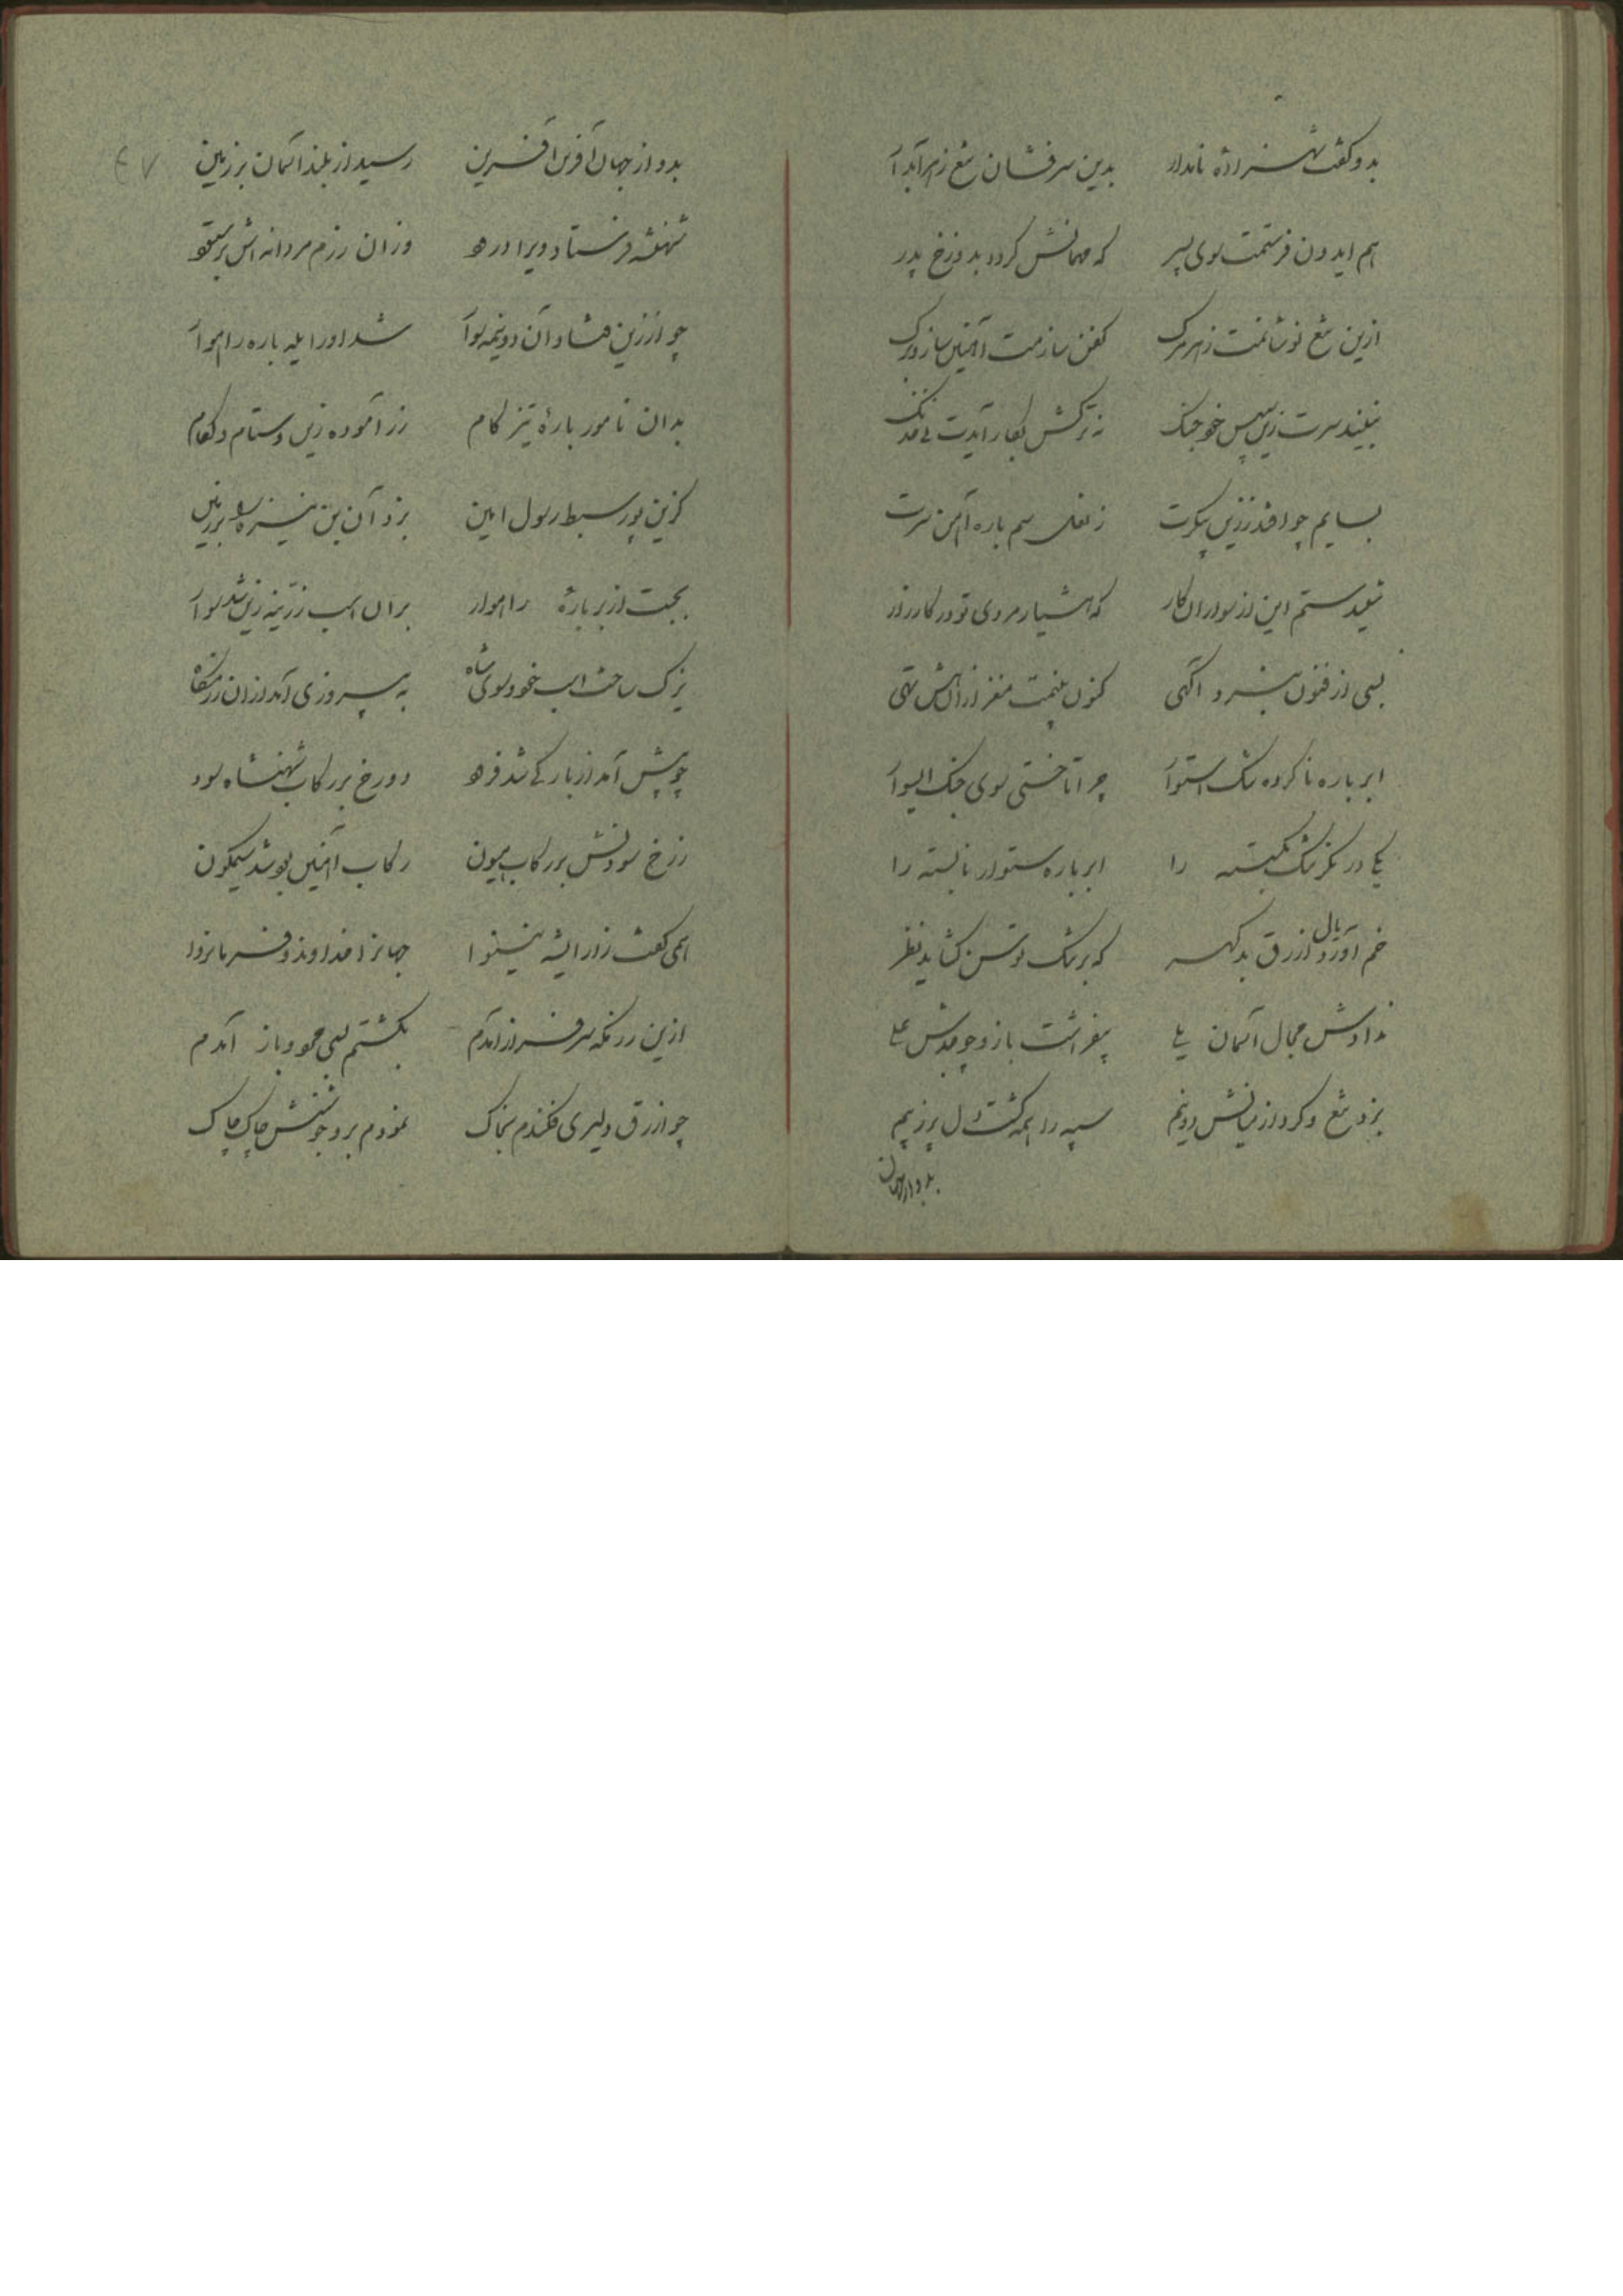 بدو گفت شهزاده نامدار بدین سرفشان تیغ زهرآبدار
هم ایدون فرستمت سوی پسر که مهمانش کردد بدوزخ پدر
ازین تیغ نوشانمت زهر مرک کفن سازمت آهنین ساز و برک
نبیند سرت زین سپس خود جنک نه ترکش بکار آیدت نی خدنک
بسایم چو افتد ز زین پیکرت ز نعل سم باره آهن سرت
شنیدستم این از سواران کار که هشیار مردی تو در کارزار
بسی از فنون نبرد آگهی کنون بینمت مغز از هش تهی
ابر باره ناکرده تنک استوار چرا تاختی سوی جنک ای سوار
یکی در نکر تنک بکسسته را ابر باره ستوار نابسته را
خم آورد یال ازرق بدکهر که بر تنک توسن کشاید نظر
ندادش مجال آسمان یلی بیفراشت بازو چو جدش علی
بزد تیغ و کرد از میانش دونیم سپه را همه کشت دل پر ز بیم
بدو از جهان
۴۷
بدو از جهان آفرین آفرین رسید از بلند آسمان بر زمین
شهنشه فرستاد ویرا درود وزان رزم مردانه اش برستود
چو از زین فتاد آن دونیمه سوار شد او را یله باره راهوار
بدان نامور باره تیز کام زر آموده زین و ستام و لکام
کزین پور سبط رسول امین بزد آن بن نیزه را بر زمین
بجست از بر باره راهوار بران اسب زرینه زین شد سوار
یزک ساخت اسب خود و سوی شاه به پیروزی آمد ازان رزمکاه
چو پیش آمد از بارکی شد فرود دو رخ بر رکاب شهنشاه سود
ز رخ سودنش بر رکاب هیون رکاب آهنین بود شد سیمکون
همی کفت زار ای شه نینوا جهانرا خداوند و فرمانروا
ازین رزمکه سرفراز آمدم بکشتم بسی عدو باز آمدم
چو ازرق دلیری فکندم بخاک نمودم برو جوشنش چاک چاک